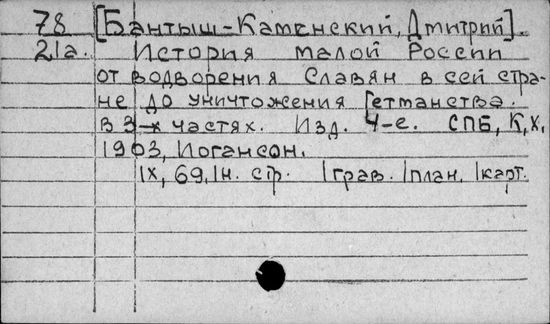 78 [Бантыш-Каменский, Дмитрий].
21а. История малой России
от водворения Славян в сей стра-
не до уничтожения Гетманства.
В 3-х частях. Изд. 4-е. СПБ, К, Х,
1903, Иогансон.
IX, 69, IH. стр. 1 грав. 1 план, 1 карт.